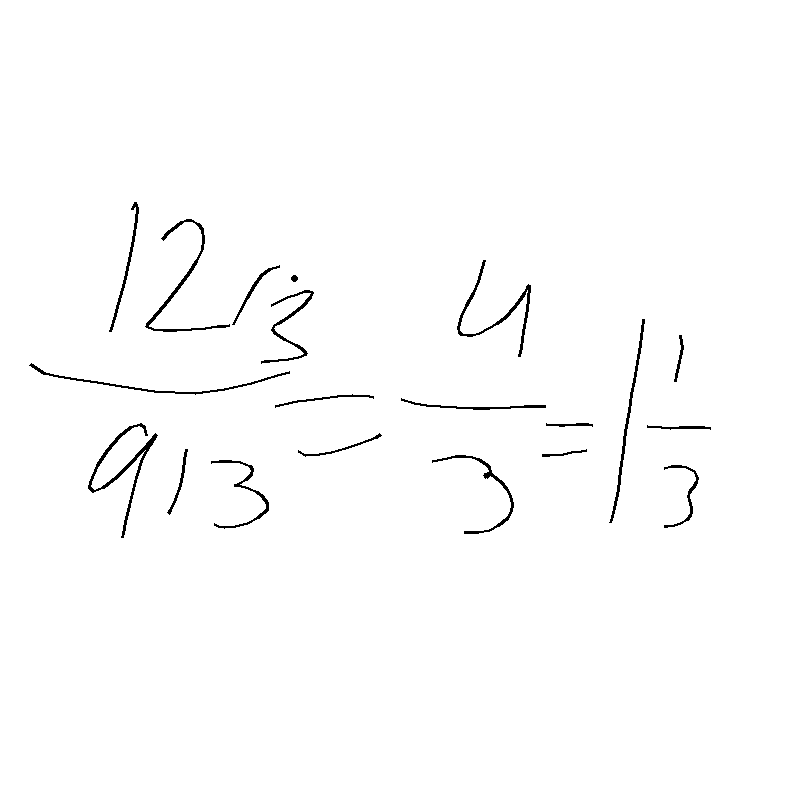 12/3 / 9/3 = 4/3 = 1 1/3